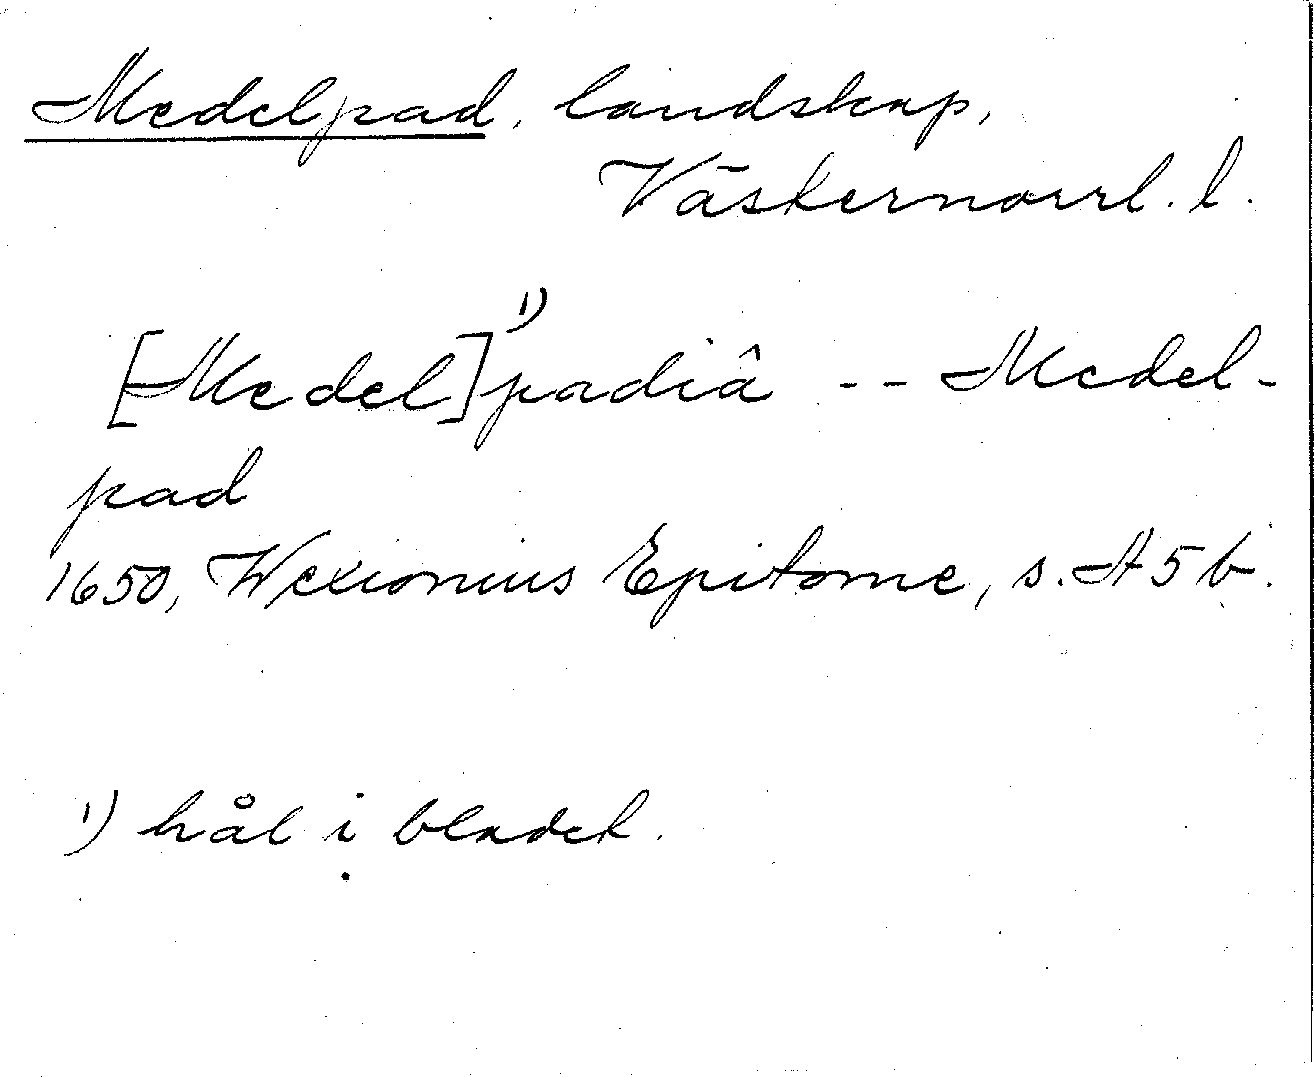 Medelpad, landskap,
Västernorrl. l.
[Medel]¹⁾padiâ -- Medel-
pad
1650, Wexionius Epitome, s. A5b.
¹⁾ hål i bladet.